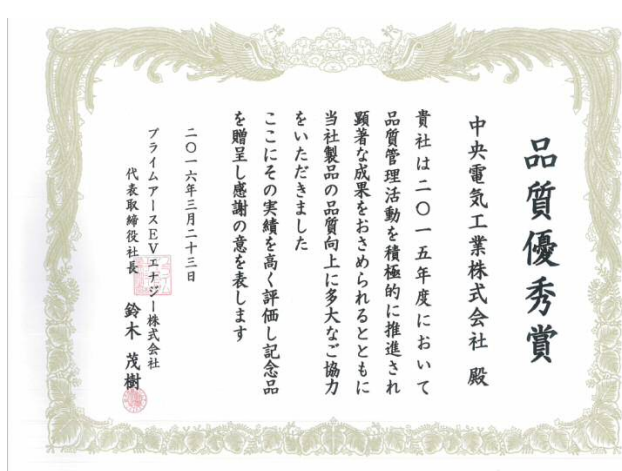 品質優秀賞
中央電気工業株式会社 殿
貴社は二〇一五年度において
品質管理活動を積極的に推進され
顕著な成果をおさめられるとともに
当社製品の品質向上に多大なご協力
をいただきました
ここにその実績を高く評価し記念品
を贈呈し感謝の意を表します
二〇一六年三月二十三日
プライムアースEVエナジー株式会社
代表取締役社長 鈴木 茂樹